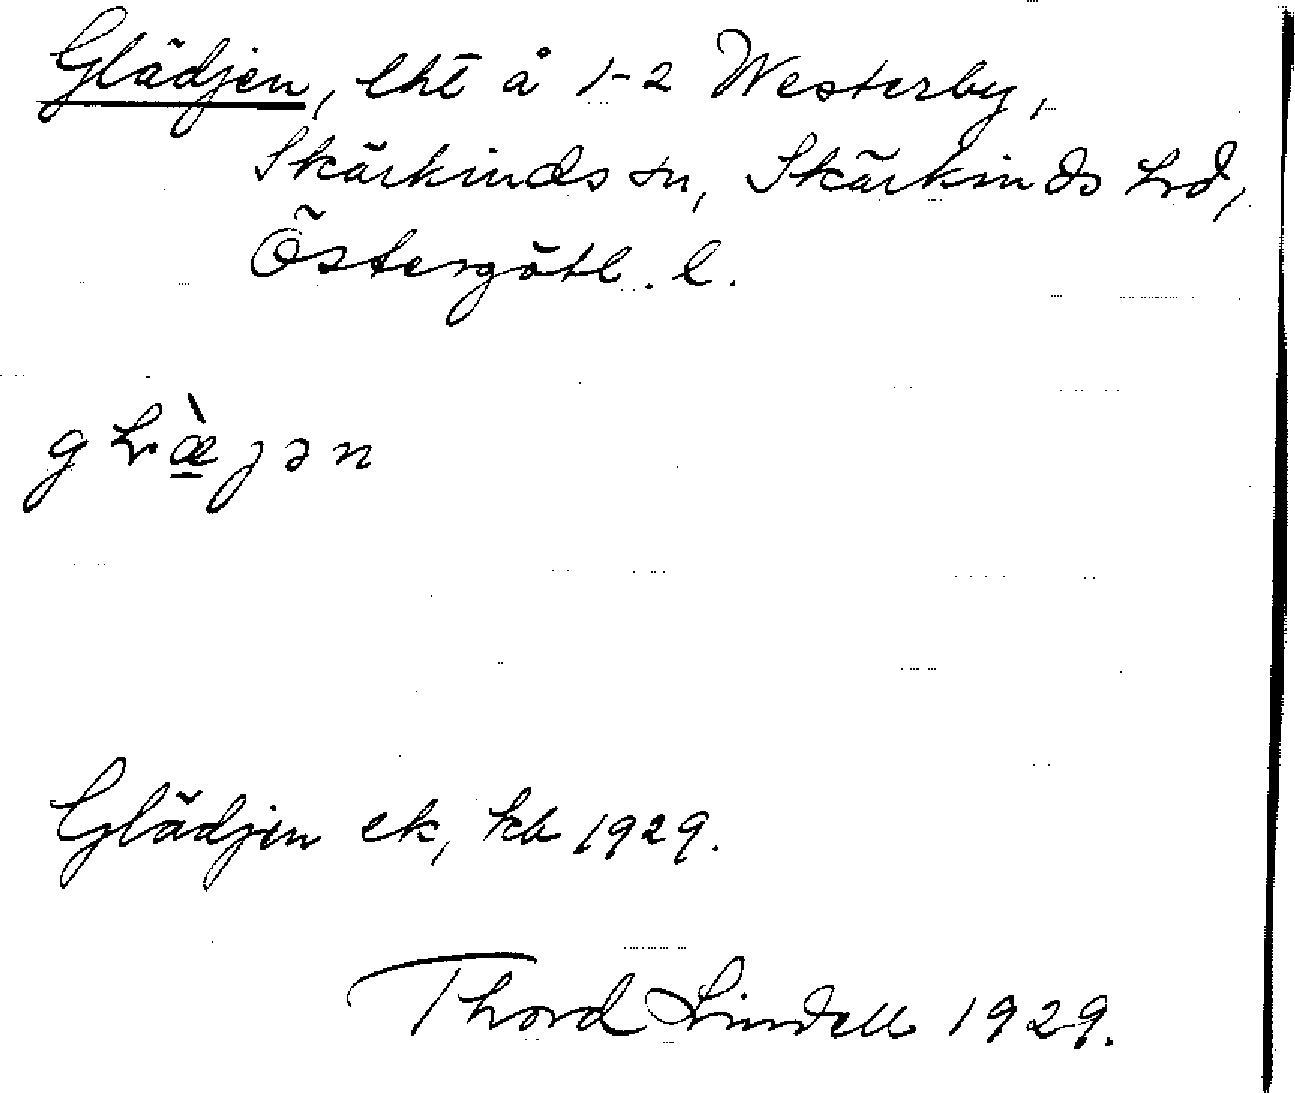 Glädjen, lht å 1-2 Westerby,
Skärkinds sn, Skärkinds hd,
Östergötl. l.
gLæ̀jən
Glädjen ek, kb 1929.
Thord Lindell 1929.